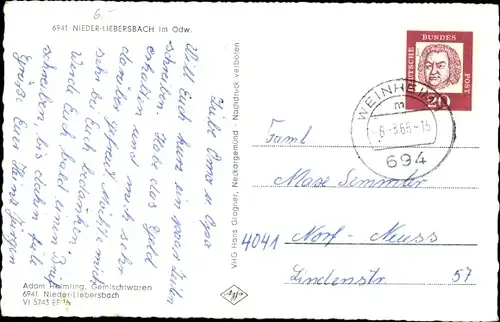 6.-
6941 NIEDER-LIEBERSBACH im Odw.
Liebe Oma u Opa
Will Euch kurz ein paar Zeilen
schreiben. Habe das Geld
erhalten und mich sehr
darüber gefreut. Möchte mich
sehr bei Euch bedanken.
Werde Euch bald einen Brief
schreiben, bis dahin viele
Grüße Euer Hans Jürgen
Adam Helmling, Gemischtwaren
6941 Nieder-Liebersbach
VI 5743 EF ½
VHG Hans Glogner, Neckargemünd · Nachdruck verboten
DEUTSCHE
BUNDES
POST
20
WEINHEIM
m
8-3.65-15
694
Faml
Maxe Semmler
4041 Norf-Neuss
Lindenstr. 57